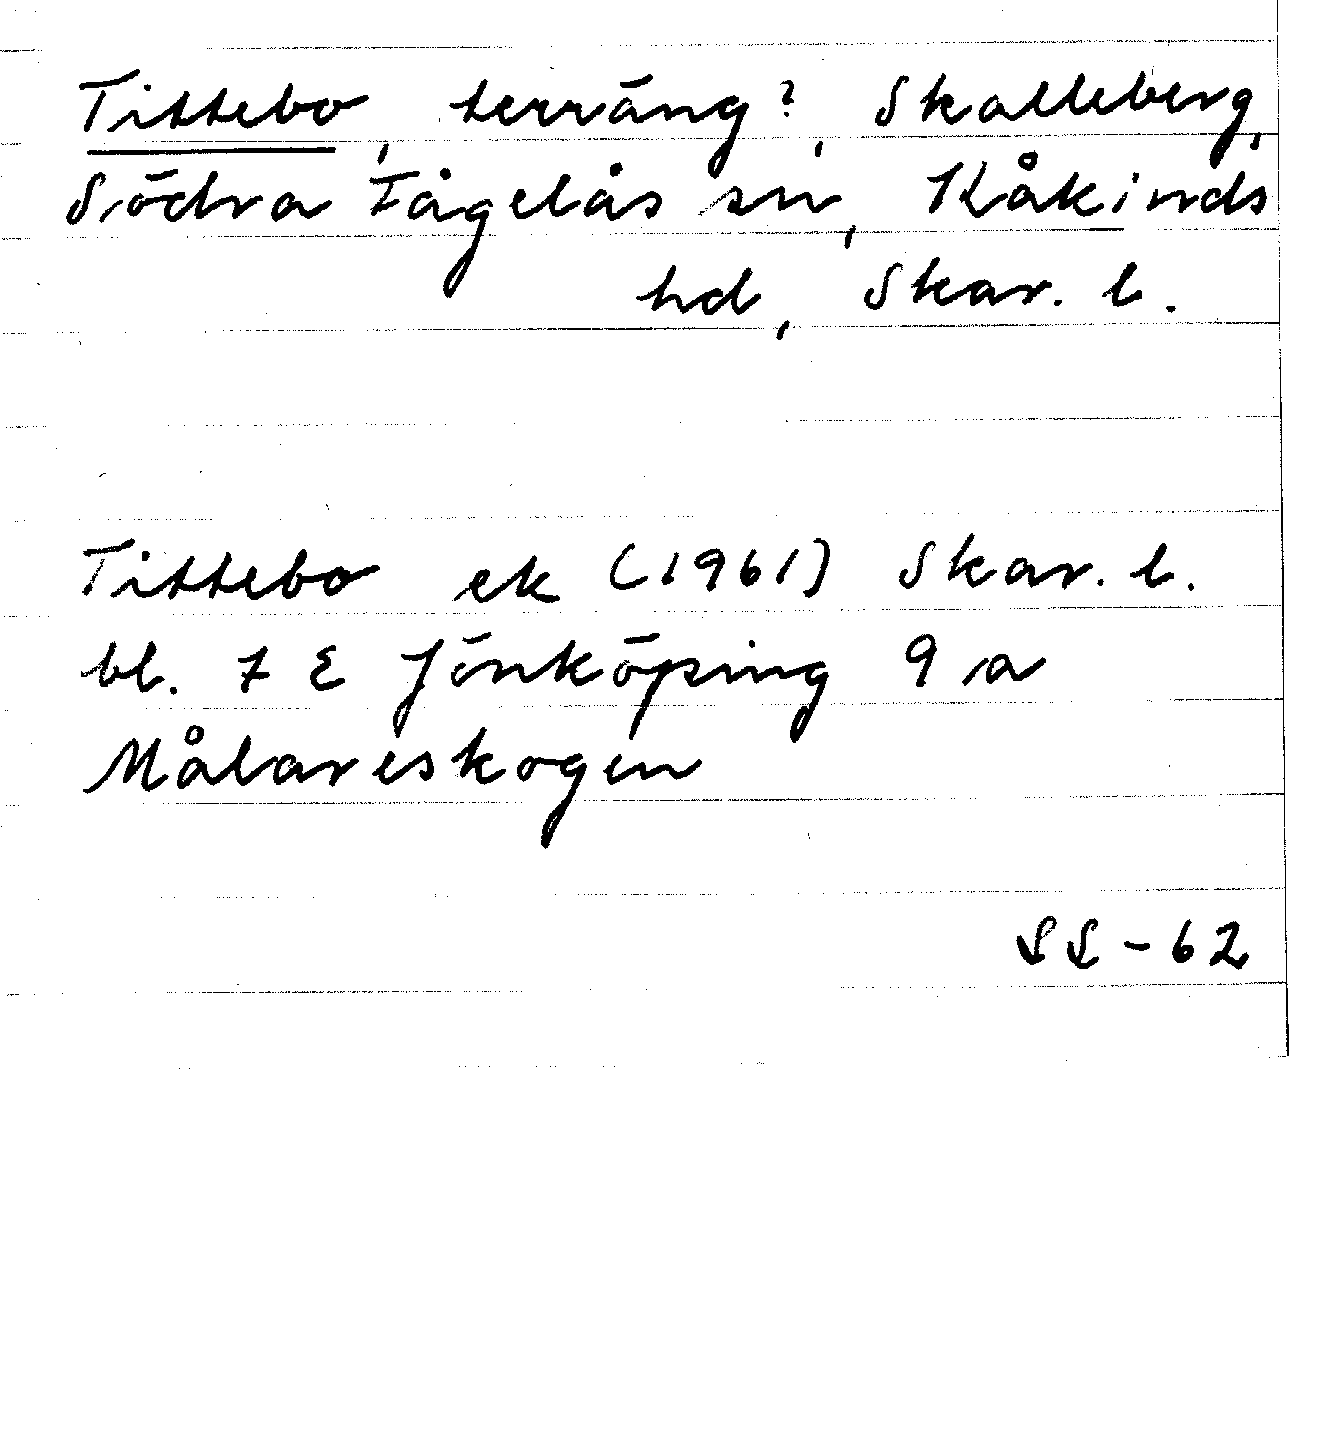 Tittebo, terräng?, Skalleberg,
Södra Fågelås sn, Kåkinds
hd, Skar. l.
Tittebo ek (1961) Skar. l.
bl. 7 E Jönköping 9 a
Målareskogen
SS-62